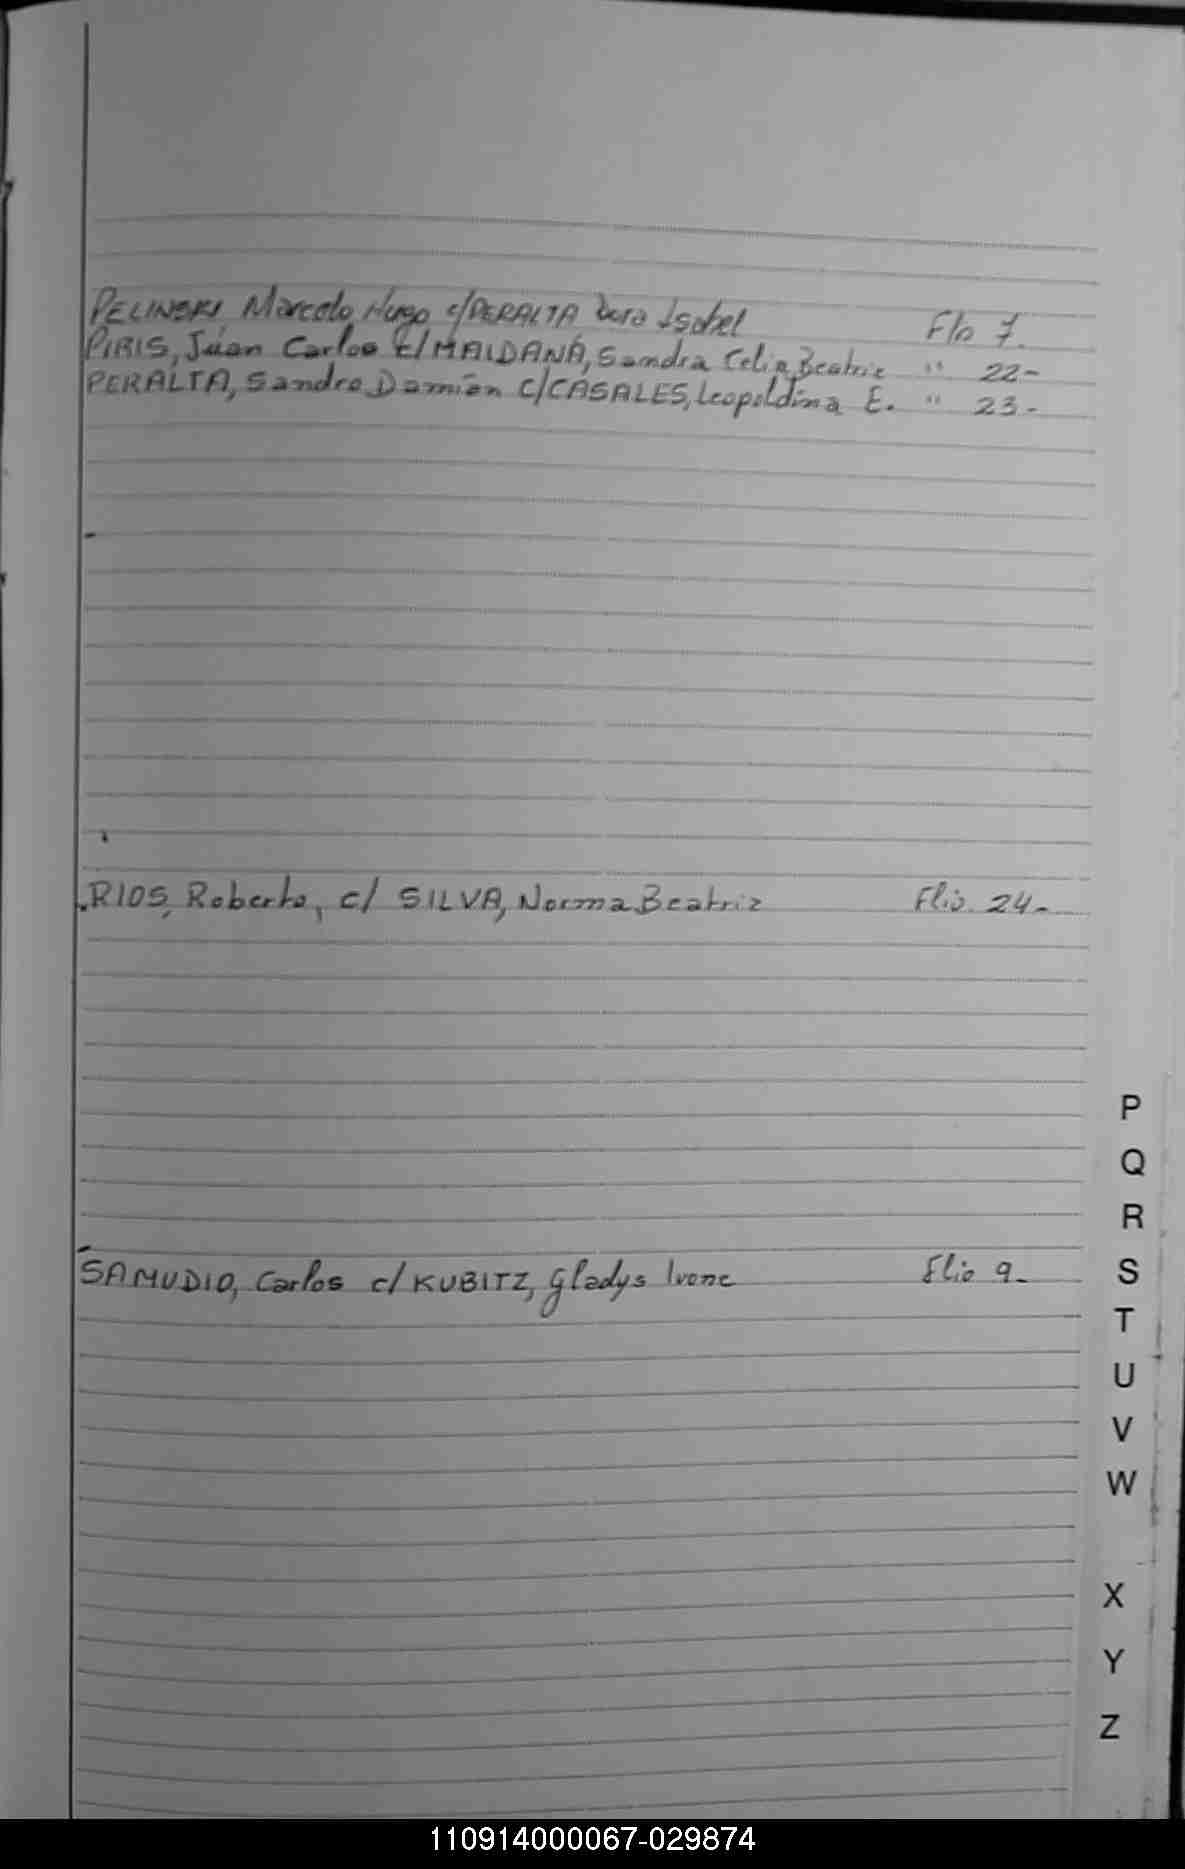 PELINSKI Marcelo Hugo c/PERALTA Isabel Flo 7.
PIRIS, Juan Carlos c/MAIDANA, Sandra Celia Beatriz " 22-
PERALTA, Sandro Damián C/CASALES, Leopoldina E. " 23-
RIOS, Roberto, c/ SILVA, Norma Beatriz Flio. 24-
SAMUDIO, Carlos c/KUBITZ, Gladys Ivone Flio 9-
P
Q
R
S
T
U
V
W
X
Y
Z
110914000067-029874